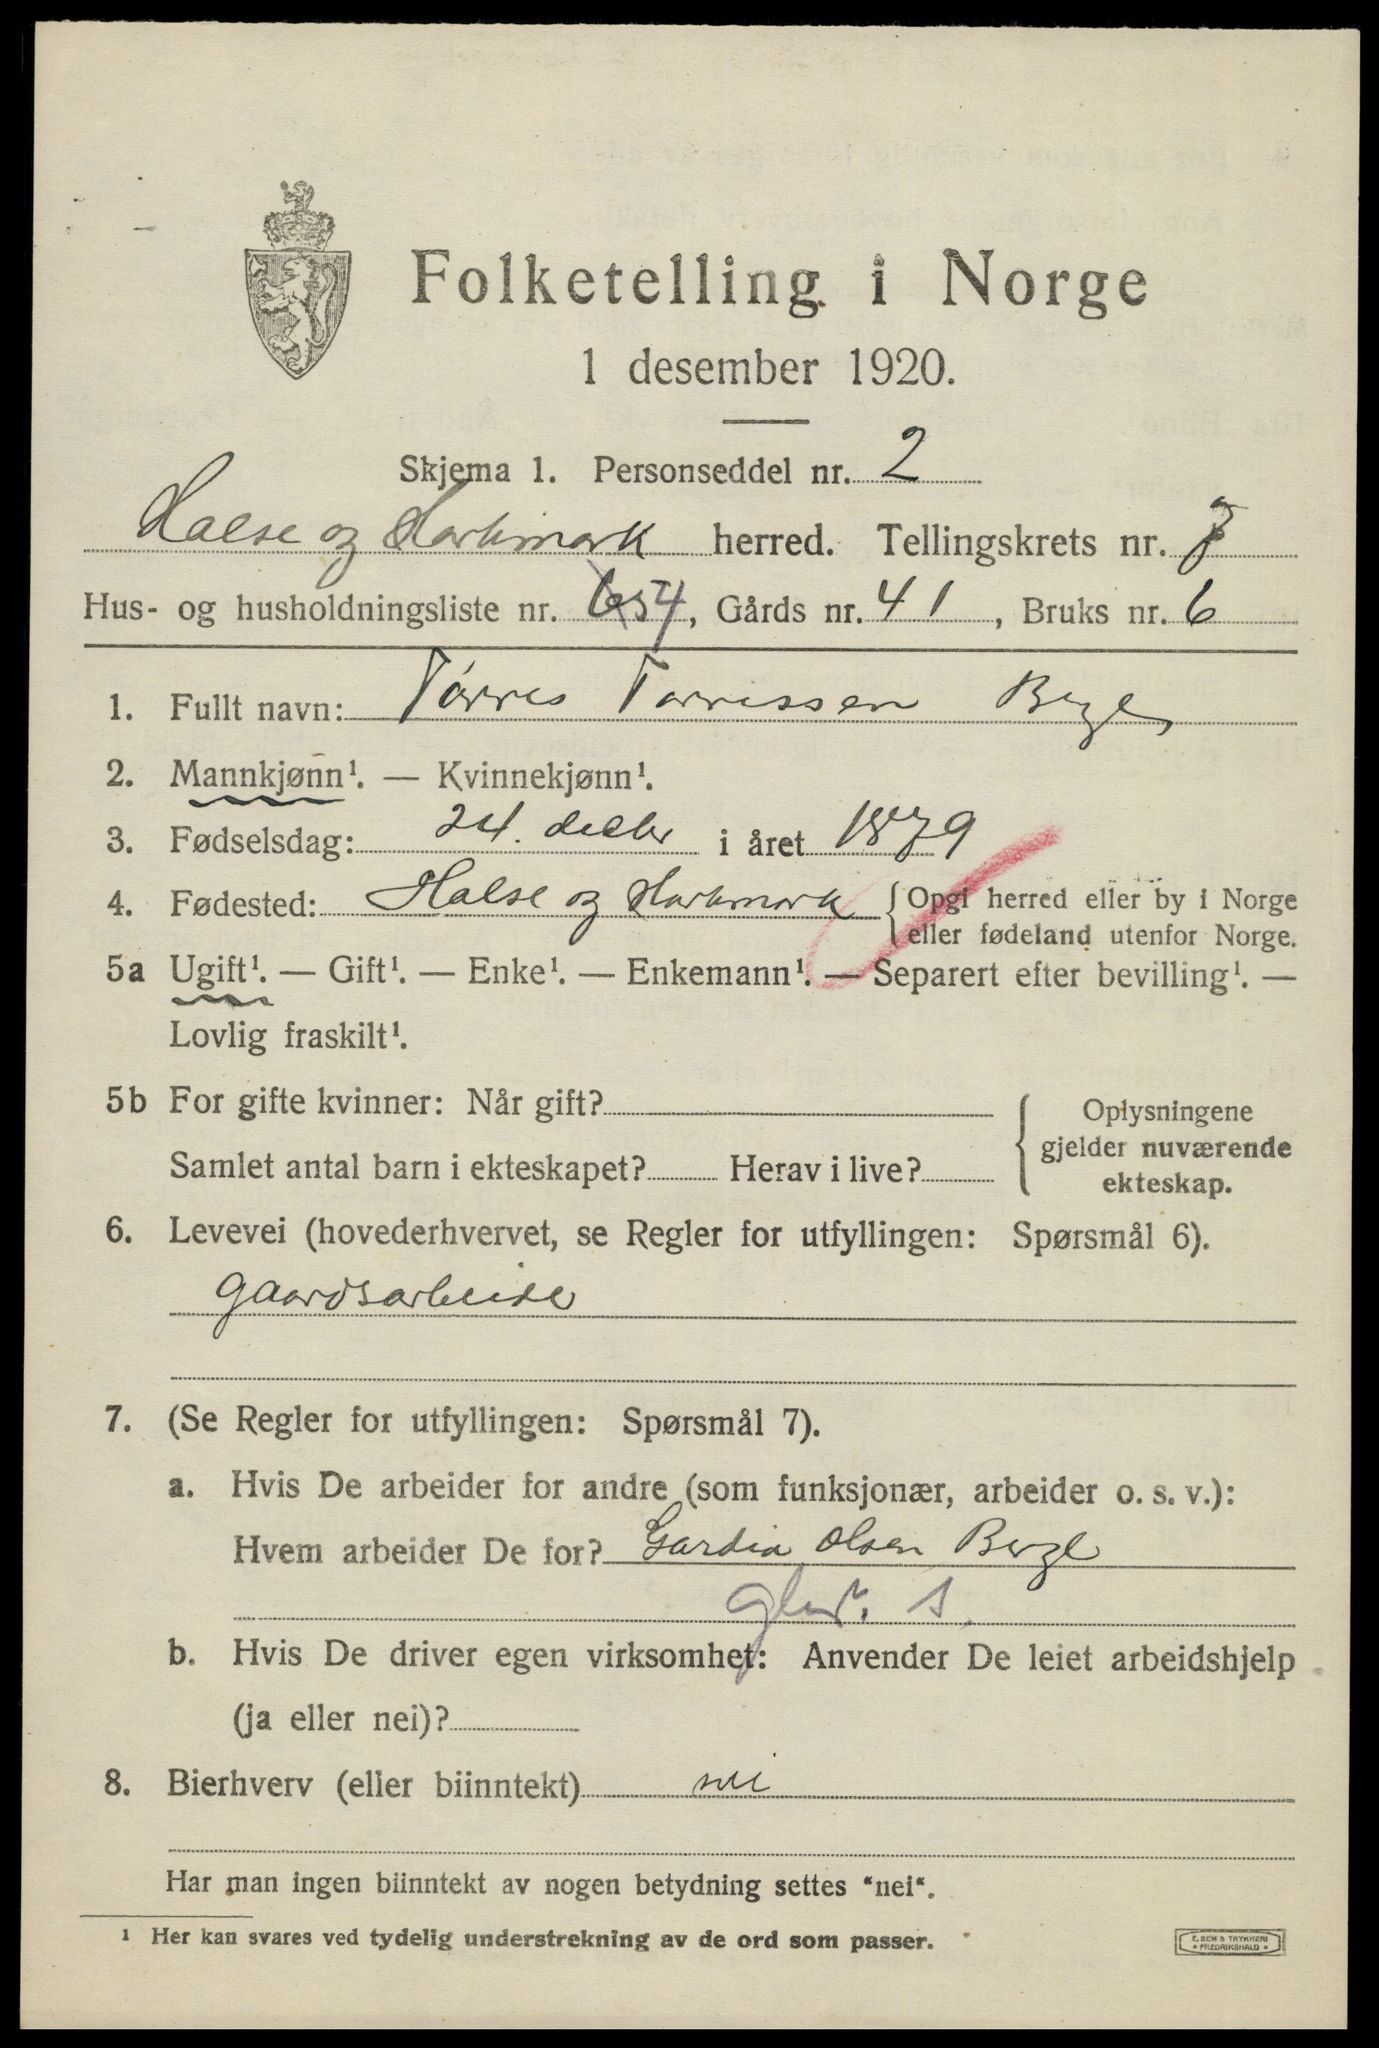 Folketelling i Norge
1 desember 1920.
Skjema 1. Personseddel nr. 2
Halse og Harkmark herred. Tellingskrets nr. 7
Hus- og husholdningsliste nr. 54, Gårds nr. 41, Bruks nr. 6
1. Fullt navn: Tórres Torressen
2. Mannkjønn¹. — Kvinnekjønn¹.
3. Fødselsdag: 24. decbr i året 1879
4. Fødested: Halse og Harkmark {Opgi herred eller by i Norge
eller fødeland utenfor Norge.
5a Ugift¹. — Gift¹. — Enke¹. — Enkemann¹. — Separert efter bevilling¹. —
Lovlig fraskilt¹.
5b For gifte kvinner: Når gift?
Samlet antal barn i ekteskapet? Herav i live?
{ Oplysningene
gjelder nuværende
ekteskap.
6. Levevei (hovederhvervet, se Regler for utfyllingen: Spørsmål 6).
gaardsarbeide
7. (Se Regler for utfyllingen: Spørsmål 7).
a. Hvis De arbeider for andre (som funksjonær, arbeider o. s. v.):
Hvem arbeider De for? Olsen Berge
s.
b. Hvis De driver egen virksomhet: Anvender De leiet arbeidshjelp
(ja eller nei)?
8. Bierhverv (eller biinntekt) nei
Har man ingen biinntekt av nogen betydning settes "nei".
¹ Her kan svares ved tydelig understrekning av de ord som passer.
E. SEM S TRYKKERI
* FREDRIKSHALD *